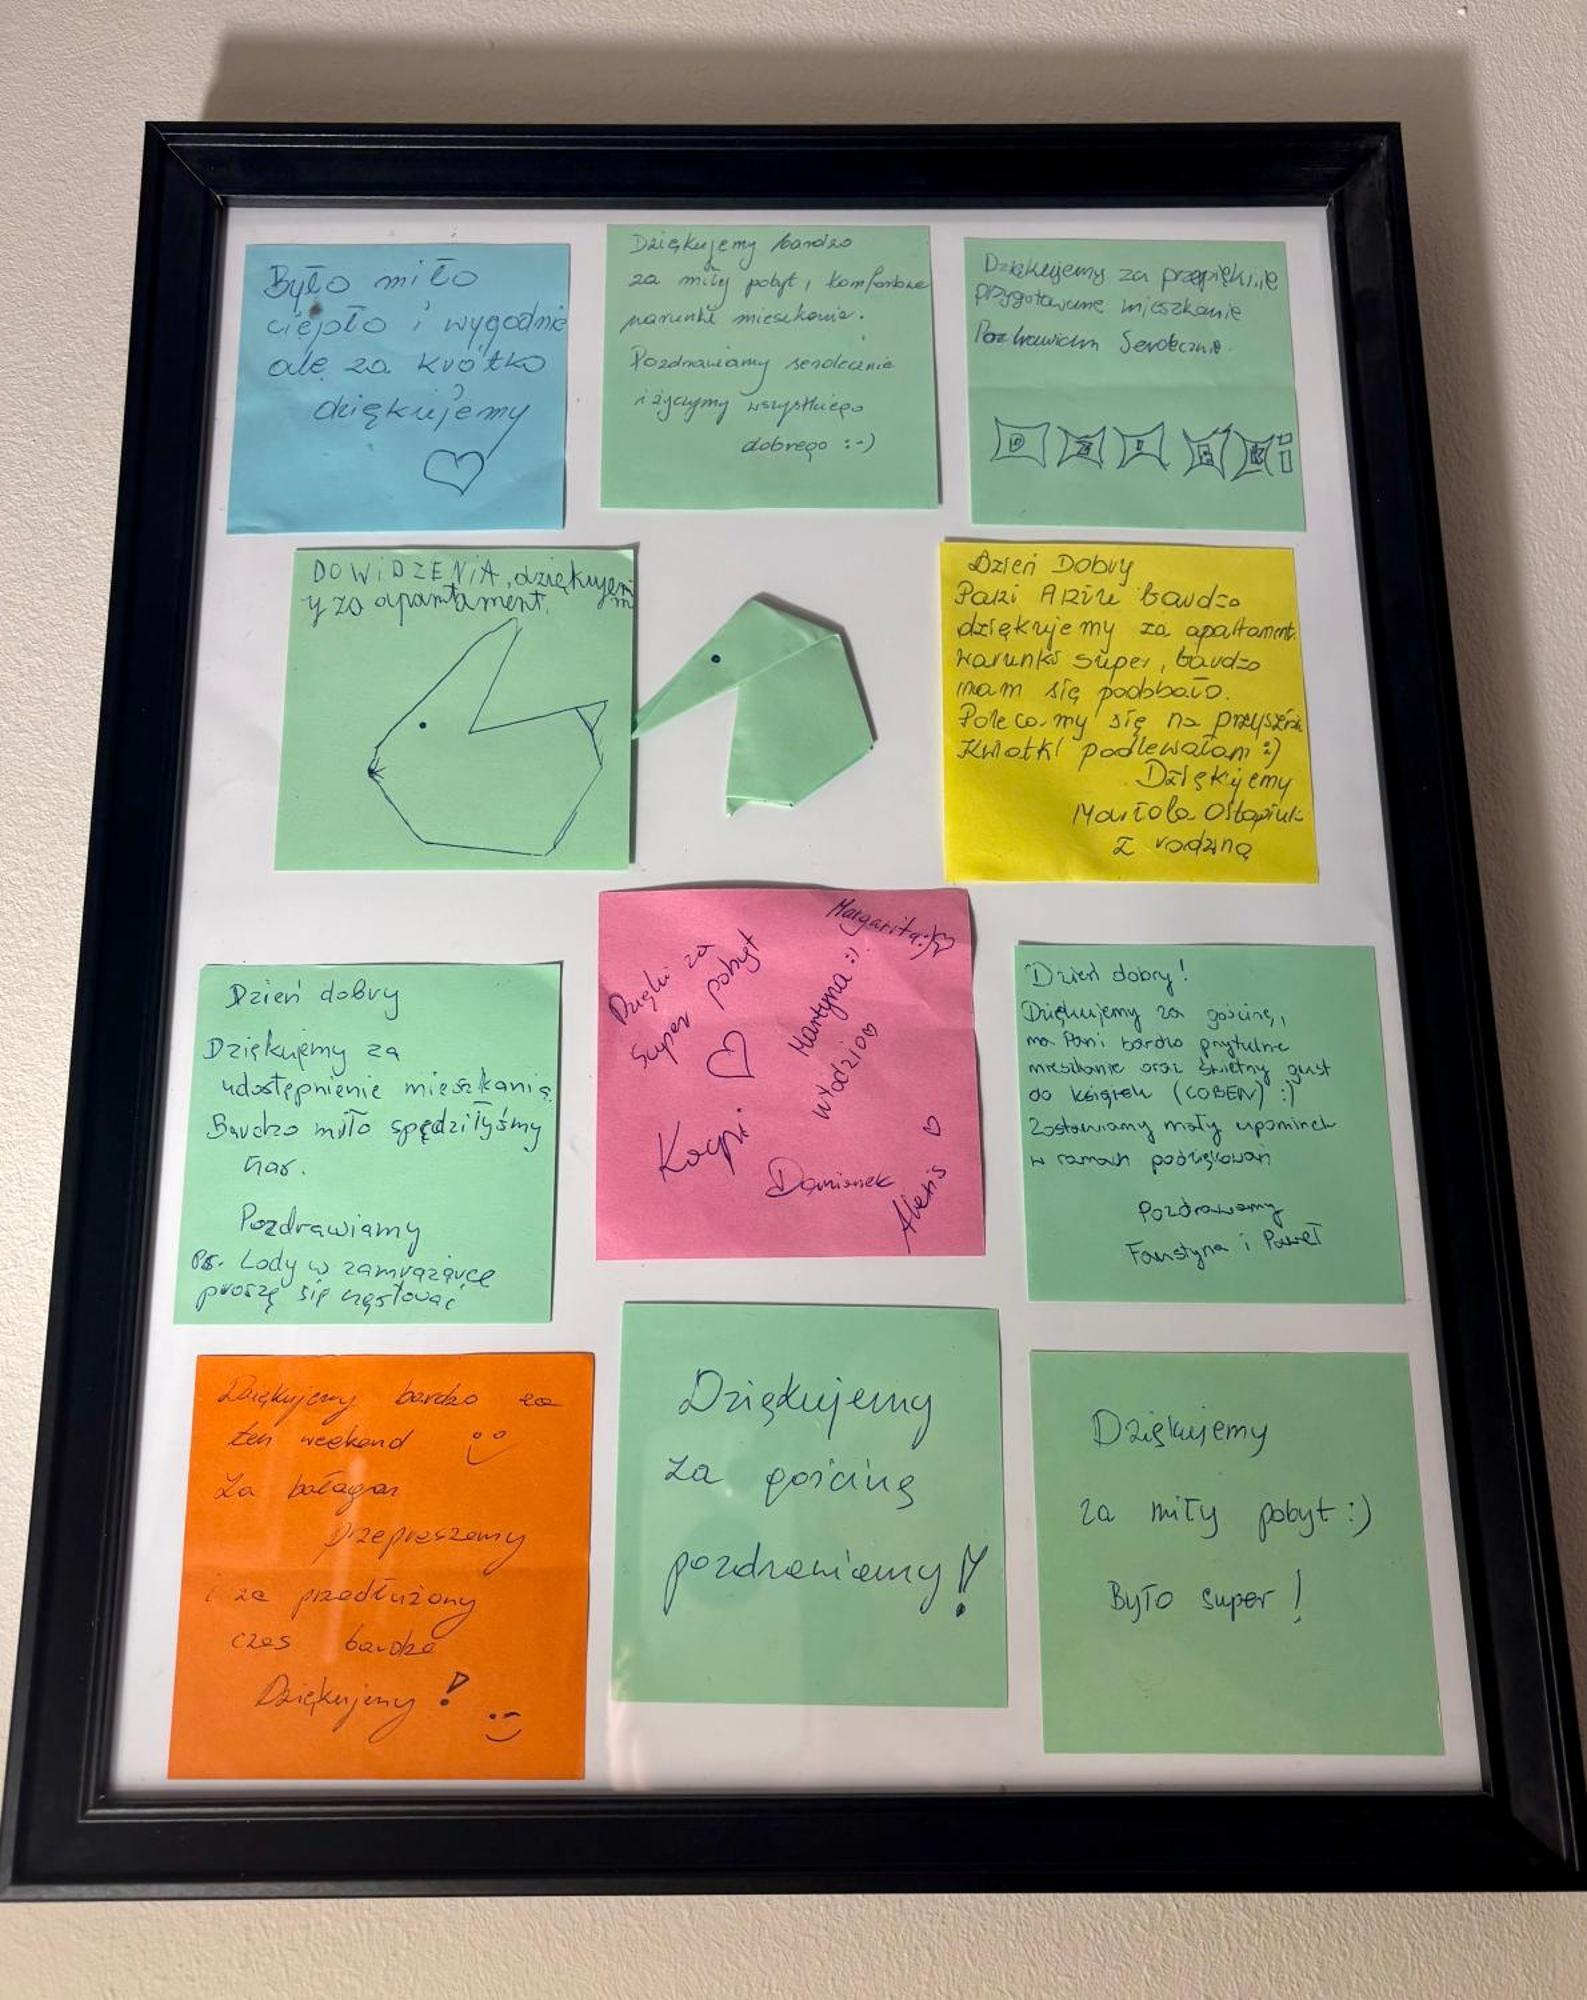 Było miło
ciepło i wygodnie
ale za krótko
dziękujemy
Dziękujemy bardzo
za miły pobyt, komfortowe
warunki mieszkania.
Pozdrawiamy serdecznie
i życzymy wszystkiego
dobrego :-)
Dziękujemy za przepięknie
przygotowane mieszkanie
Pozdrawiam Serdecznie.
DZIĘKI
DOWiDZENiA, dziękujem
y za apartament. m
Dzień Dobry
Pani bardzo
dziękujemy za apartament.
warunki super, bardzo
nam się podobało.
Polecamy się na
Kwiatki podlewałam :)
Dziękujemy
Mariola Ostapiuk
z rodziną
Dzień dobry
Dziękujemy za
udostępnienie mieszkania.
Bardzo miło spędziłyśmy
czas.
Pozdrawiamy
Ps. Lody w zamrażarce
proszę się częstować
Dzięki za
super pobyt
Margarita:)
Martyna :)
Włodzio
Kacpi
Damianek
Alexis
Dzień dobry!
Dziękujemy za gościnę,
ma Pani bardzo przytulne
mieszkanie oraz świetny gust
do książek (COBEN) :)
Zostawiamy mały upominek
w ramach podziękowań
Pozdrawiamy
Faustyna i Paweł
Dziękujemy bardzo za
ten weekend
Za bałagan
przepraszamy
i za przedłużony
czas bardzo
Dziękujemy!
Dziękujemy
za gościnę
pozdrawiamy!
Dziękujemy
za miły pobyt :)
Było super!